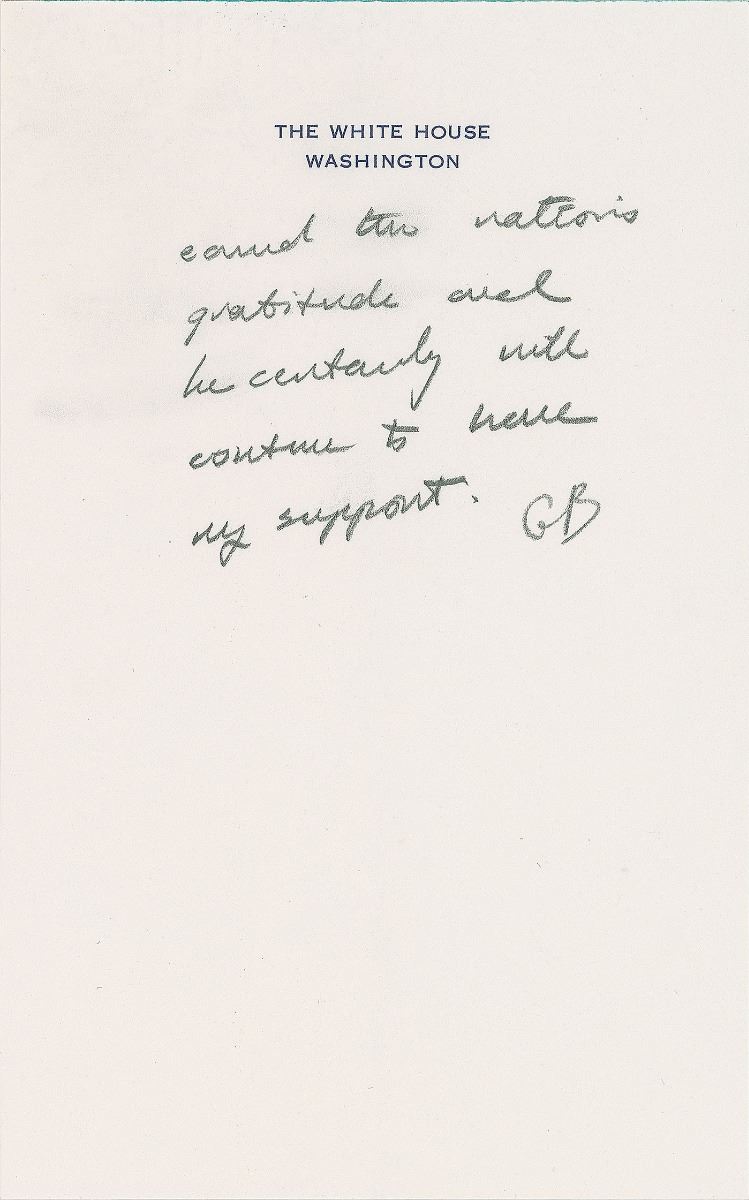 THE WHITE HOUSE
WASHINGTON
earned this nation's
gratitude and
he certainly will
continue to have
my support. GB